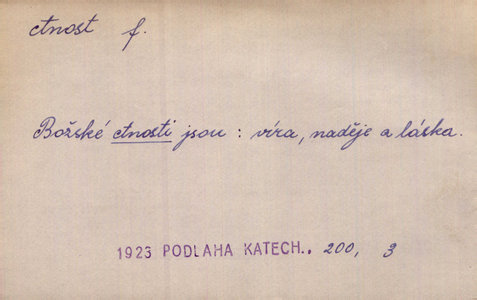 ctnost f.
Božské ctnosti jsou : víra, naděje a láska.
1923 PODLAHA KATECH., 200, 3